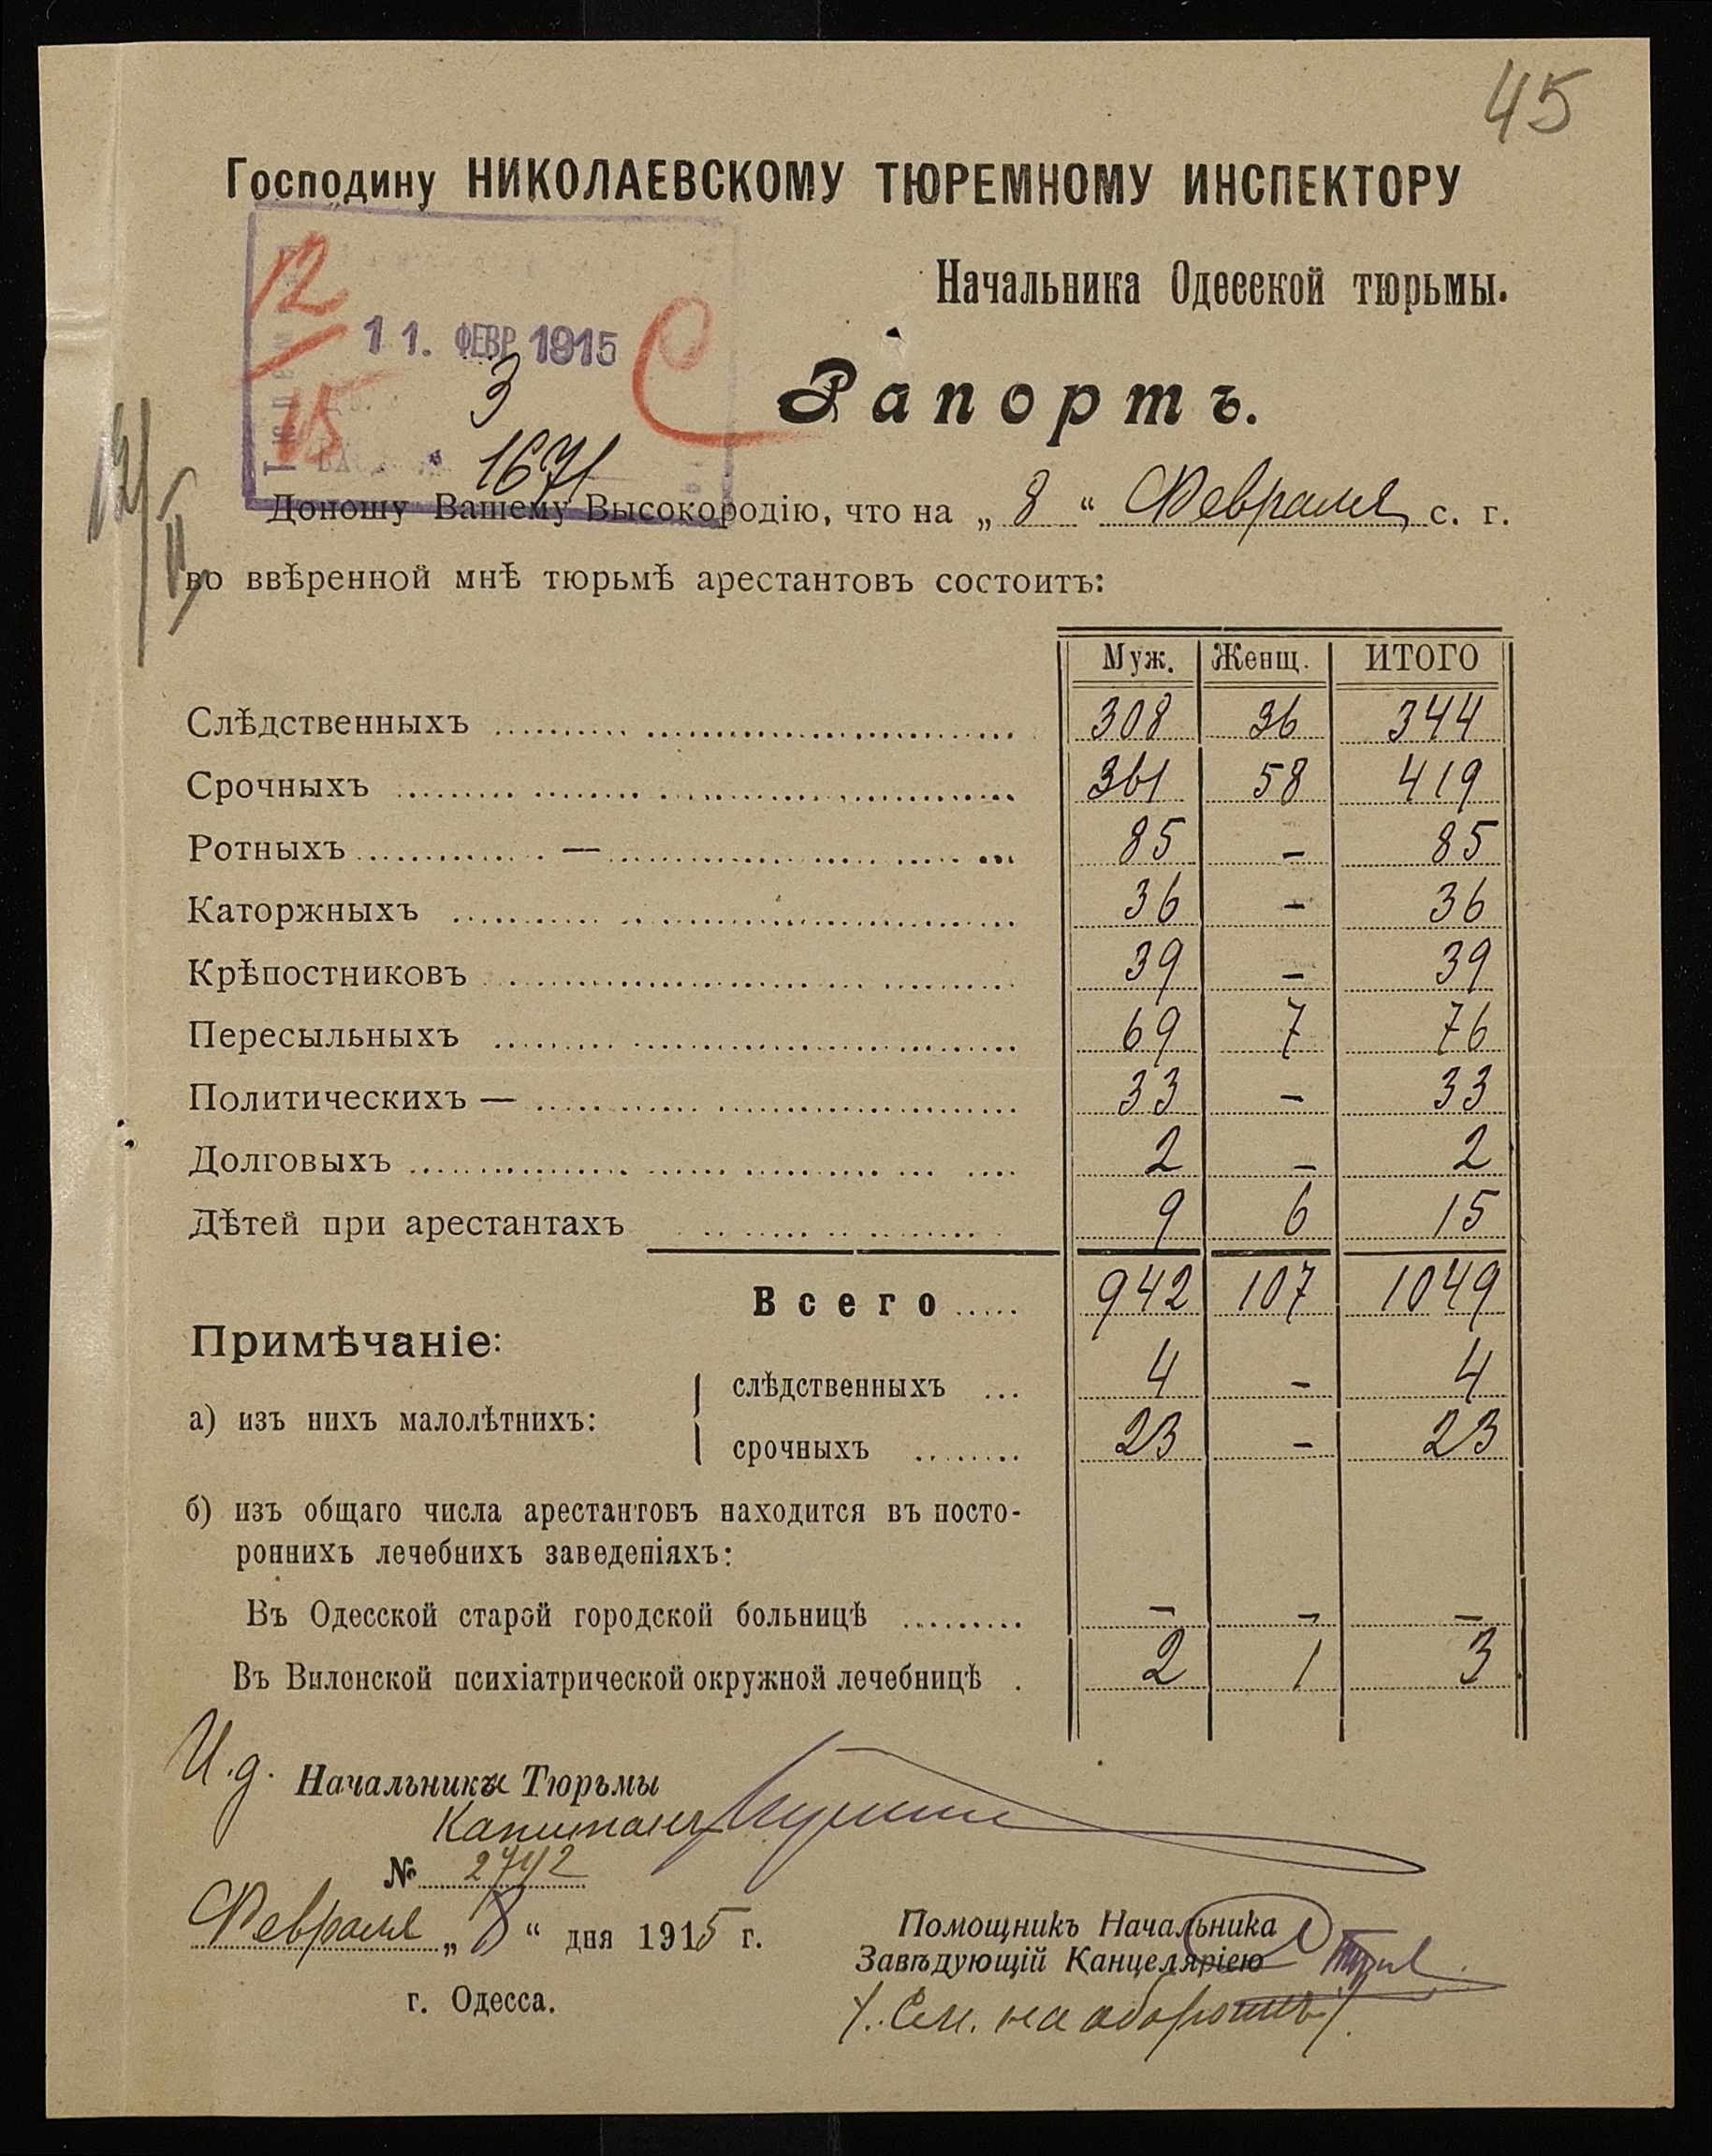 45
Господину НИКОЛАЕВСКОМУ ТЮРЕМНОМУ ИНСПЕКТОРУ
Начальника Одесской тюрьмы.
12
15
11. ФЕВР 1915
3
1671
С
Рапортъ.
12/II
Доношу Вашему Высокородію, что на „ 8 “ Февраля с. г.
во ввѣренной мнѣ тюрьмѣ арестантовъ состоитъ:
Муж. Женщ. ИТОГО
Слѣдственныхъ 308 36 344
Срочныхъ 361 58 419
Ротныхъ — 85 - 85
Каторжныхъ 36 - 36
Крѣпостниковъ 39 - 39
Пересыльныхъ 69 7 76
Политическихъ — 33 - 33
Долговыхъ 2 - 2
Дѣтей при арестантахъ 9 6 15
Всего 942 107 1049
Примѣчаніе:
слѣдственныхъ ... 4 - 4
а) изъ нихъ малолѣтнихъ:
срочныхъ 23 - 23
б) изъ общаго числа арестантовъ находится въ посто-
роннихъ лечебнихъ заведеніяхъ:
Въ Одесской старой городской больницѣ - - -
Въ Виленской психіатрической окружной лечебницѣ . 2 1 3
И.д. Начальника Тюрьмы
Капитанъ
№ 2742
Февраля „ 8 “ дня 1915 г.
г. Одесса.
Помощникъ Начальника
Завѣдующій Канцеляріею
/. См. на оборотѣ /.